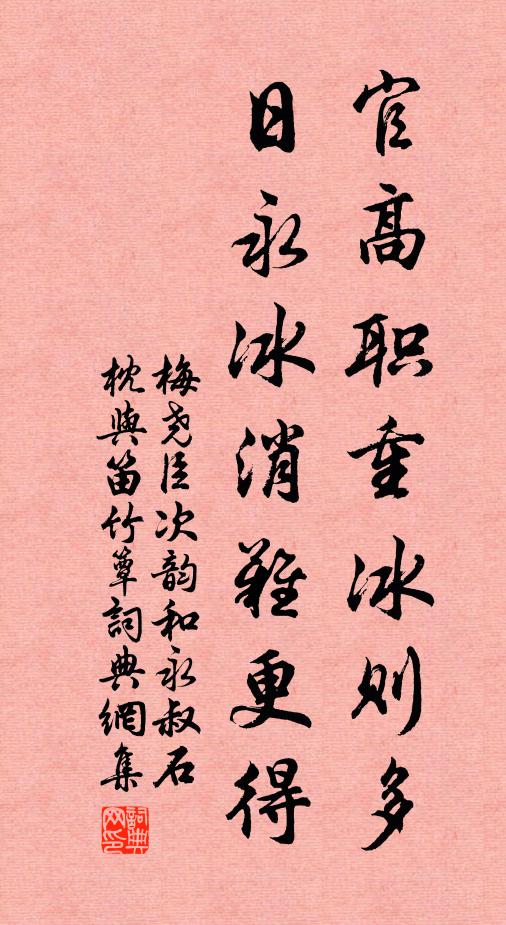 官高职重冰则多
日永冰消难更得
梅尧臣次韵和永叔石
枕與笛竹簟詞典網集
詞典网印